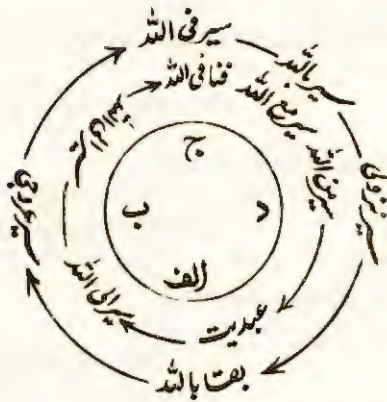 سیر فی اللہ
سیر باللہ
سیر نزولی
بقا باللہ
سیر عروجی
فنا فی اللہ
سیر مع اللہ
سیر من اللہ
عبدیت
سیر الی اللہ
ج
د
الف
ب